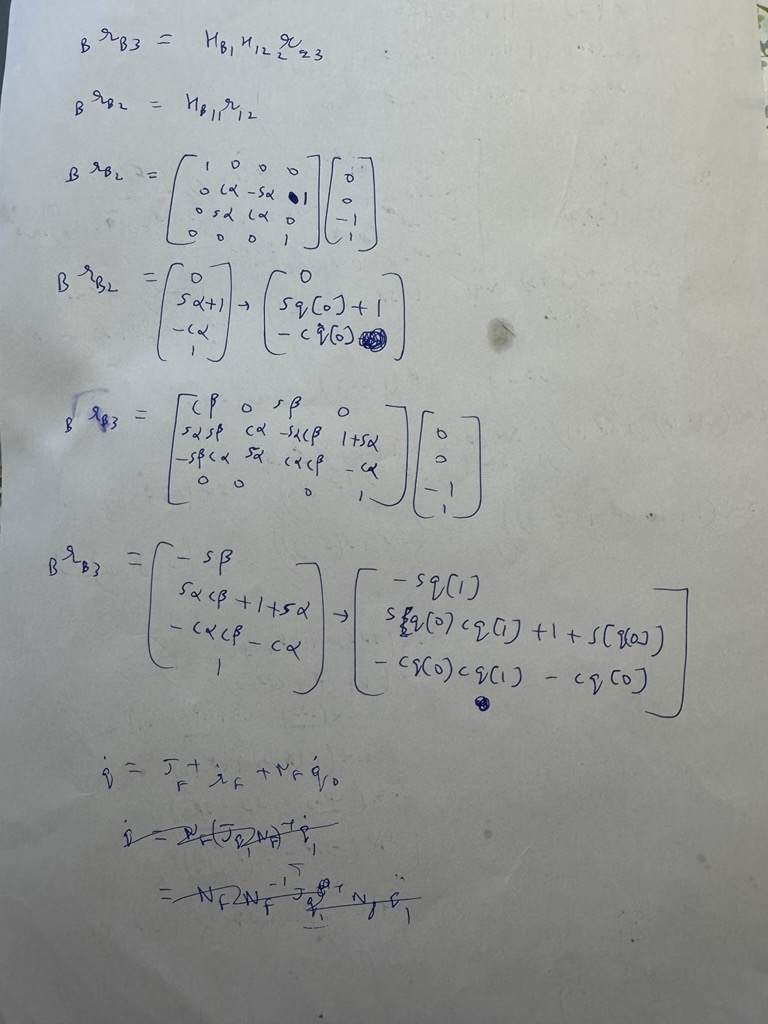 B r B3 = H B1 H 12 2 r 23
B r B2 = H B1 1 r 12
B r B2 = [ 1 0 0 0 ; 0 cα -sα 1 ; 0 sα cα 0 ; 0 0 0 1 ] [ 0 ; 0 ; -1 ; 1 ]
B r B2 = [ 0 ; sα+1 ; -cα ; 1 ] → [ 0 ; sq[0]+1 ; -cq[0] ]
B r B3 = [ cβ 0 sβ 0 ; sαsβ cα -sαcβ 1+sα ; -sβcα sα cαcβ -cα ; 0 0 0 1 ] [ 0 ; 0 ; -1 ; 1 ]
B r B3 = [ -sβ ; sαcβ+1+sα ; -cαcβ-cα ; 1 ] → [ -sq[1] ; sq[0]cq[1]+1+s[q[0]] ; -cq[0]cq[1] - cq[0] ]
q̇ = J F + ṙ F + N F q̇ 0